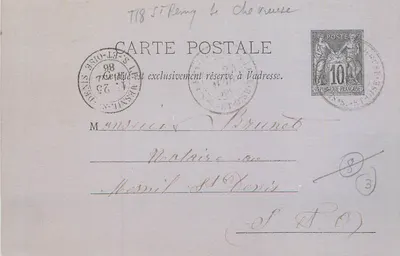 T18 St Remy le chevreuse
CARTE POSTALE
Ce côté est exclusivement réservé à l'adresse.
LE MESNIL-ST-DENIS S.-ET-OISE
23
88
10
Monsieur Brunet
Notaire au
Mesnil St Denis
S & O
8
3